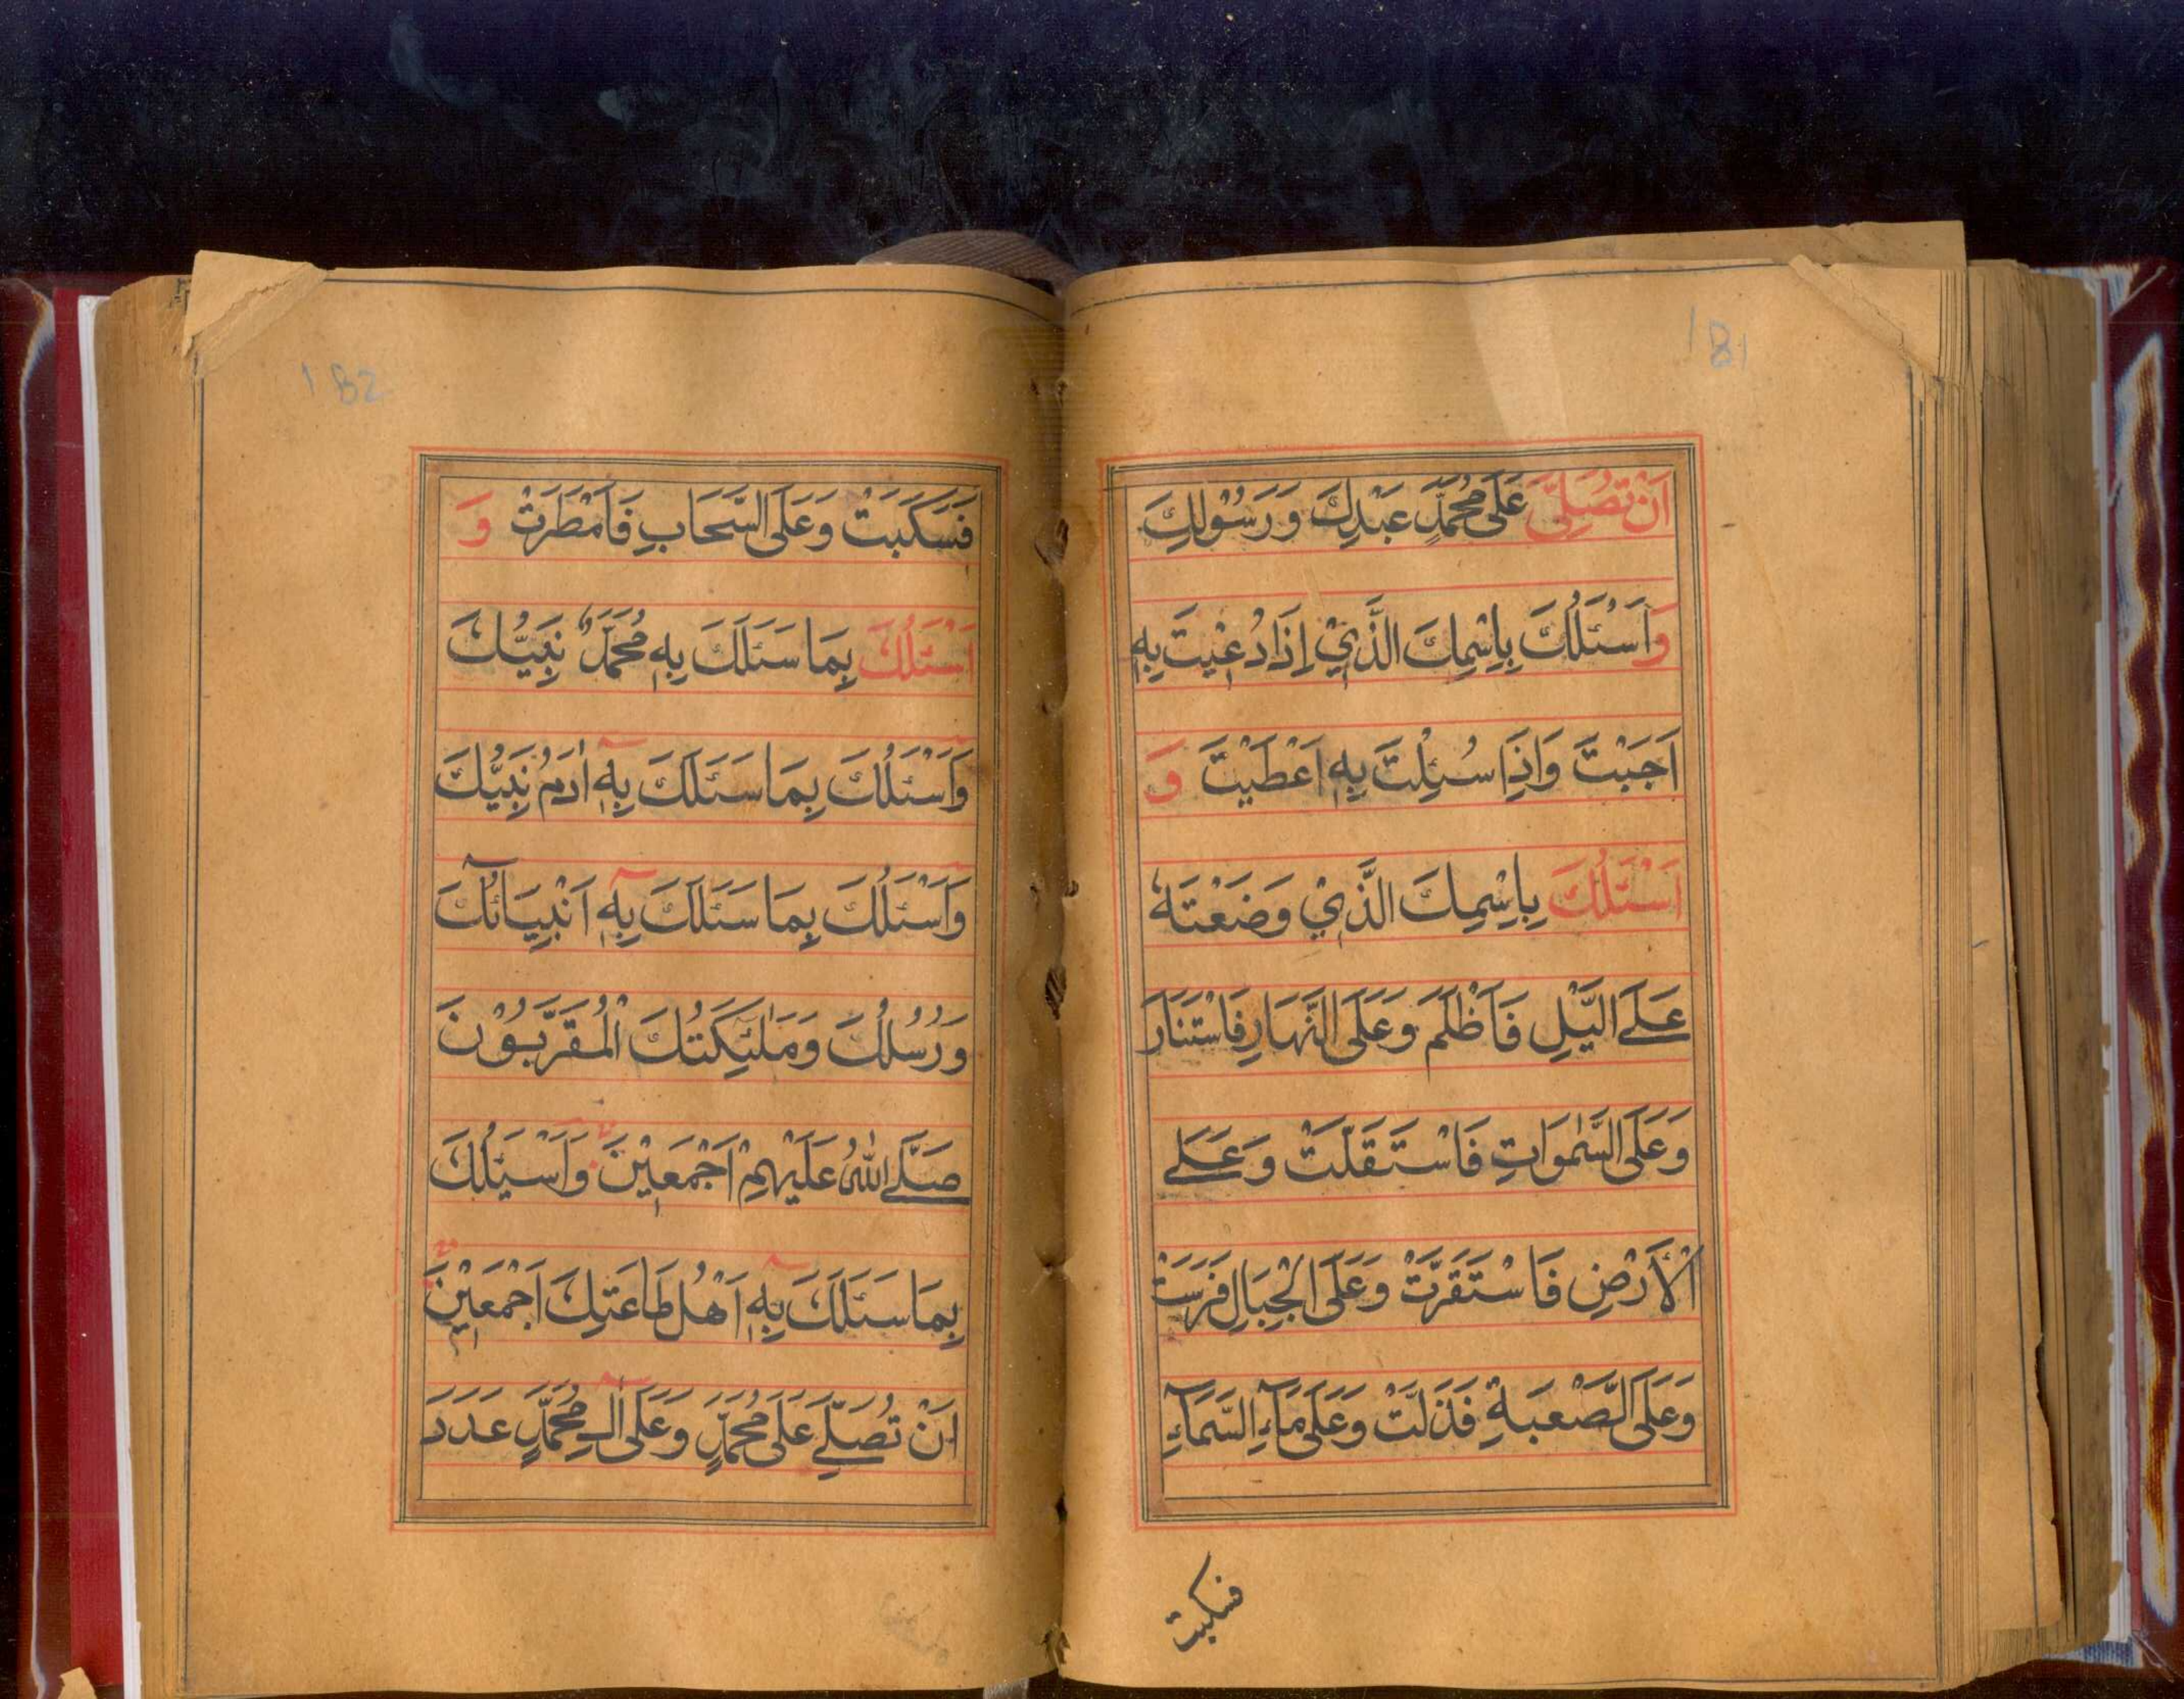 181
اَنْ تُصَلِّيَ عَلٰى مُحَمَّدٍ عَبْدِكَ وَرَسُوْلِكَ
وَاَسْئَلُكَ بِاِسْمِكَ الَّذِيْ اِذَا دُعِيْتَ بِهٖ
اَجَبْتَ وَاِذَا سُئِلْتَ بِهٖ اَعْطَيْتَ وَ
اَسْئَلُكَ بِاِسْمِكَ الَّذِيْ وَضَعْتَهٗ
عَلَے الَّيْلِ فَاَظْلَمَ وَعَلَى النَّهَارِ فَاسْتَنَارَ
وَعَلَى السَّمٰوَاتِ فَاسْتَقَلَّتْ وَعَلَے
الْاَرْضِ فَاسْتَقَرَّتْ وَعَلَى الْجِبَالِ فَرَسَتْ
وَعَلَى الصَّعْبَةِ فَذَلَّتْ وَعَلَى مَآءِ السَّمَآءِ
فسكبت
182
فَسَكَبَتْ وَعَلَى السَّحَابِ فَاَمْطَرَتْ وَ
اَسْئَلُكَ بِمَا سَئَلَكَ بِهٖ مُحَمَّدٌ نَبِيُّكَ
وَاَسْئَلُكَ بِمَا سَئَلَكَ بِهٖٓ اٰدَمُ نَبِيُّكَ
وَاَسْئَلُكَ بِمَا سَئَلَكَ بِهٖٓ اَنْبِيَائُكَ
وَرُسُلُكَ وَمَلٰئِكَتُكَ الْمُقَرَّبُوْنَ
صَلَّے اللّٰهُ عَلَيْهِمْ اَجْمَعِيْنَ وَاَسْئَلُكَ
بِمَا سَئَلَكَ بِهٖٓ اَهْلُ طَاعَتِكَ اَجْمَعِيْنَ
اَنْ تُصَلِّے عَلٰى مُحَمَّدٍ وَعَلٰٓى اٰلِ مُحَمَّدٍ عَدَدَ